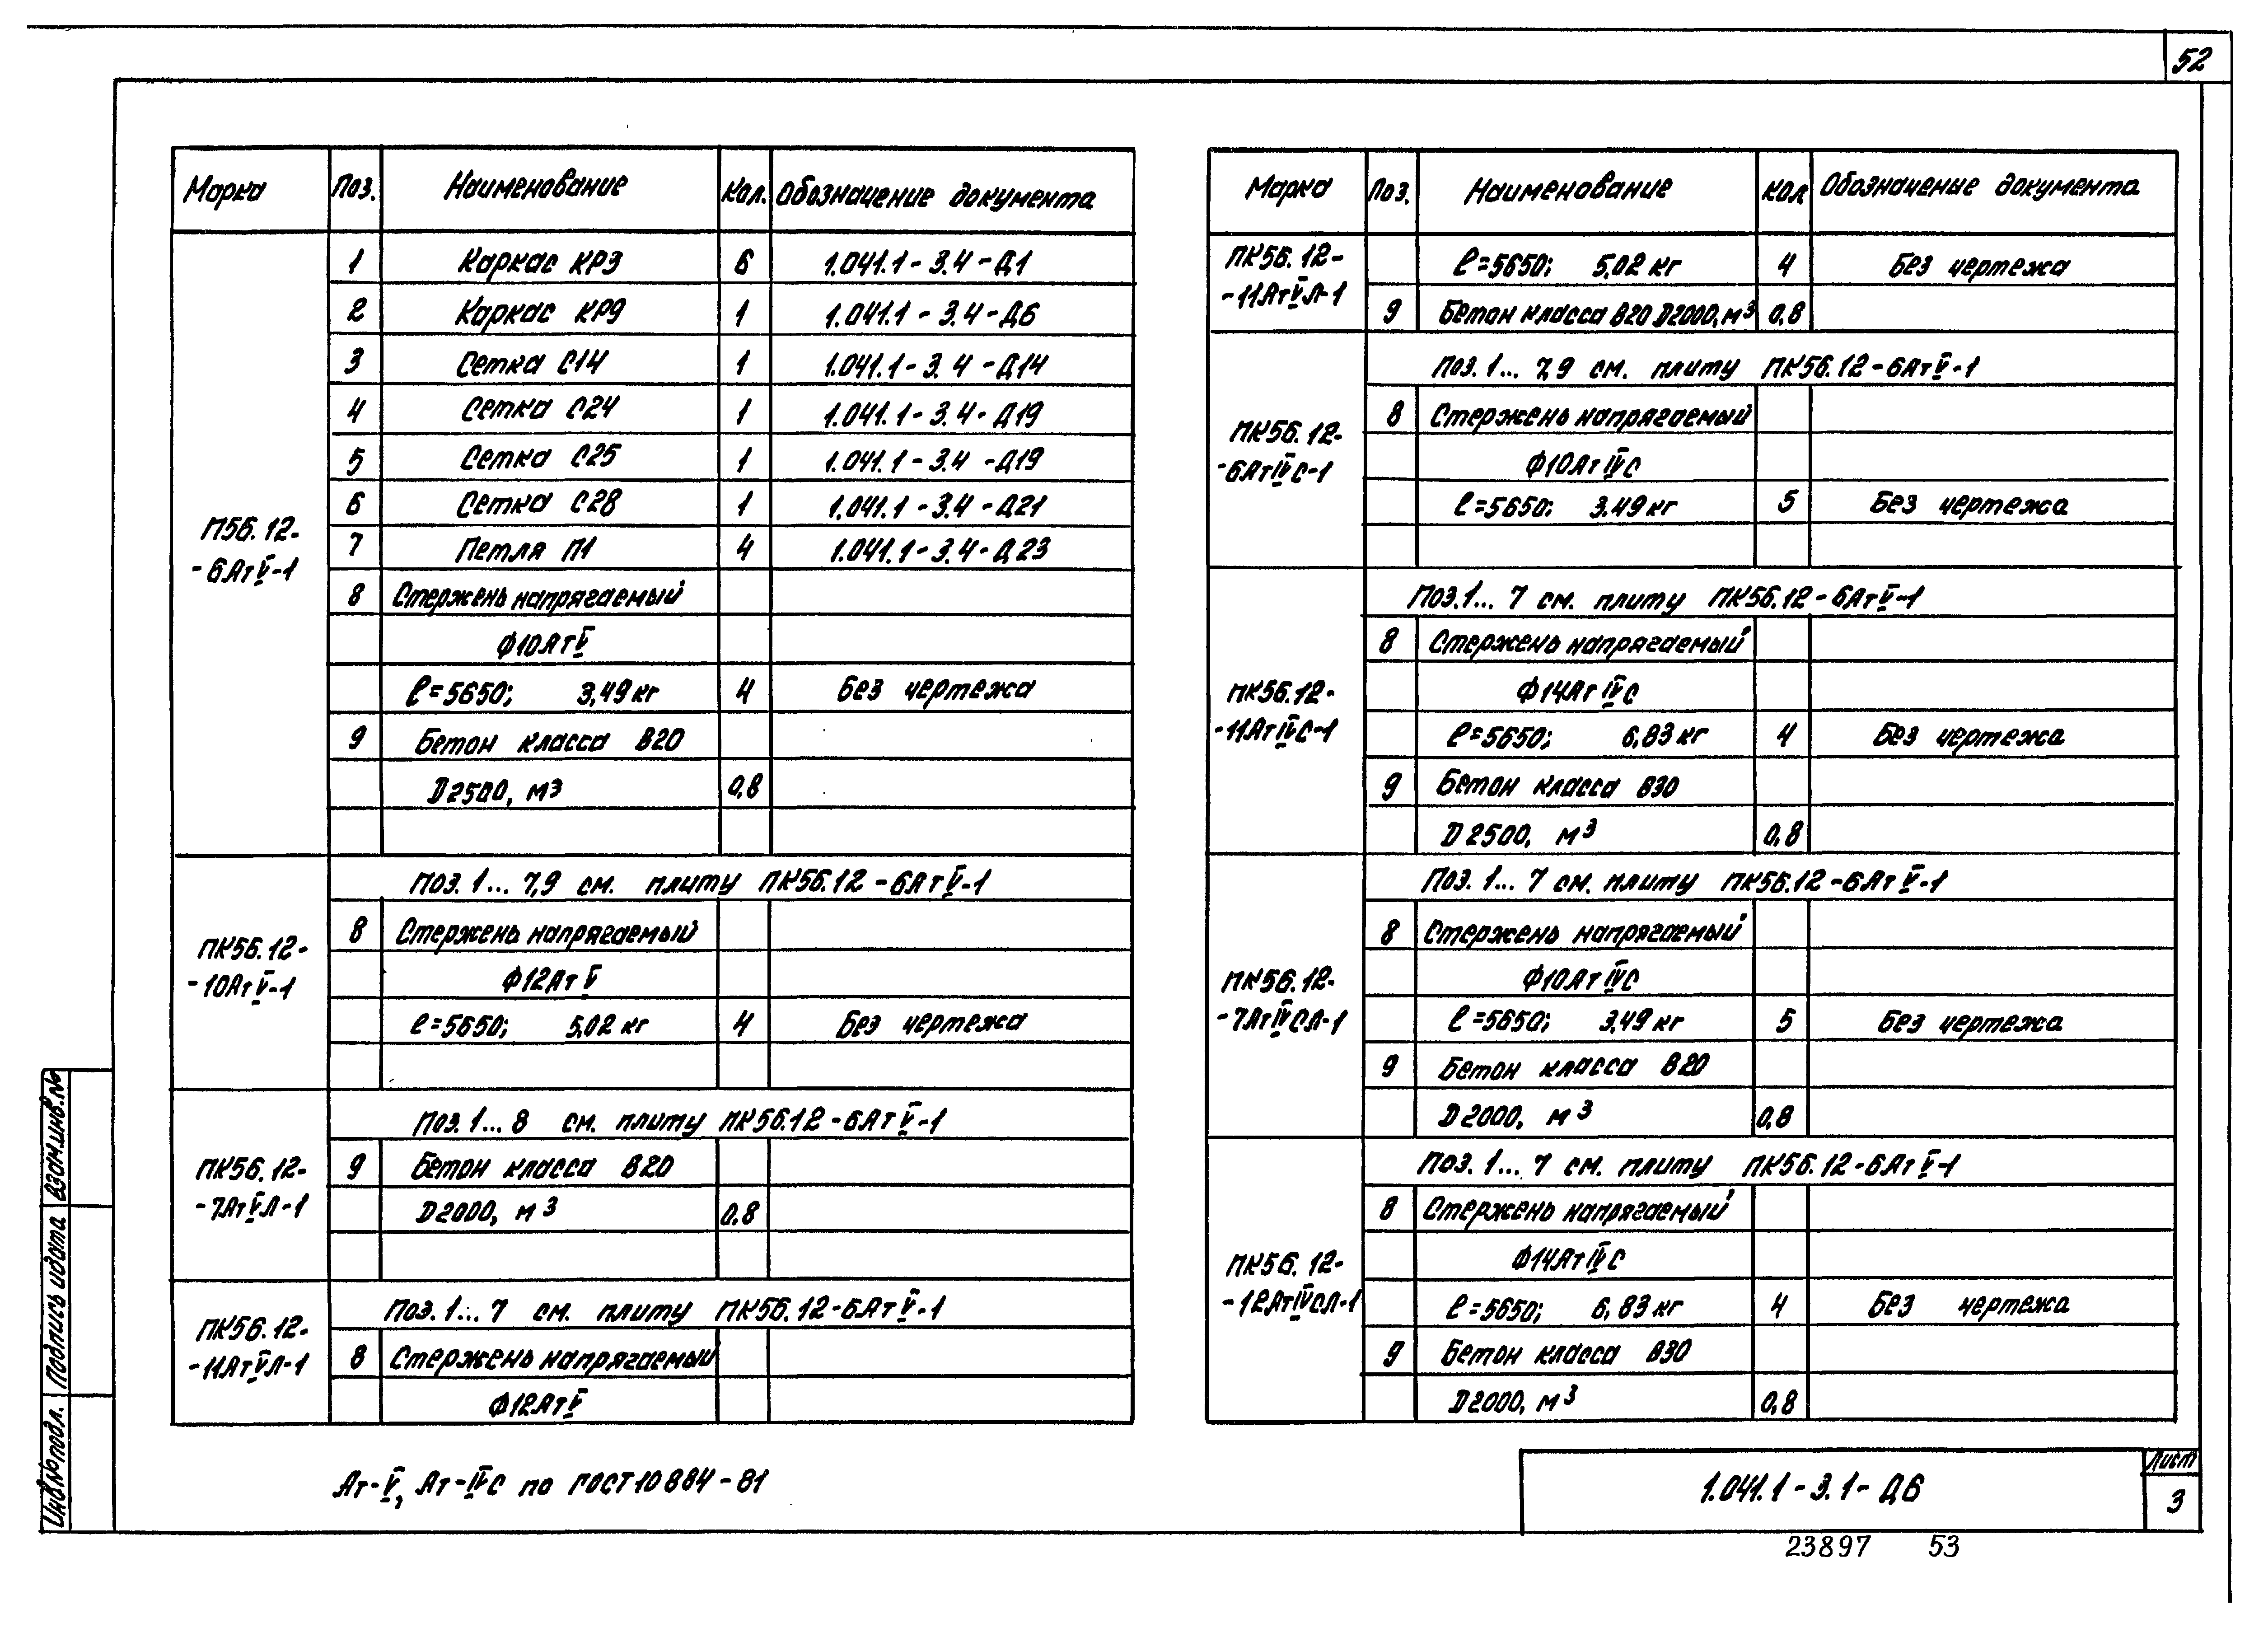 52
Марка Поз. Наименование Кол. Обозначение документа
П56.12-
-6АтV-1
1 Каркас КР3 6 1.041.1-3.4-Д1
2 Каркас КР9 1 1.041.1-3.4-Д6
3 Сетка С14 1 1.041.1-3.4-Д14
4 Сетка С24 1 1.041.1-3.4-Д19
5 Сетка С25 1 1.041.1-3.4-Д19
6 Сетка С28 1 1.041.1-3.4-Д21
7 Петля П1 4 1.041.1-3.4-Д23
8 Стержень напрягаемый
Ф10АтV
ℓ=5650; 3,49 кг 4 Без чертежа
9 Бетон класса В20
D2500, м3 0,8
ПК56.12-
-10АтV-1
Поз. 1... 7,9 см. плиту ПК56.12-6АтV-1
8 Стержень напрягаемый
Ф12АтV
ℓ=5650; 5,02 кг 4 Без чертежа
ПК56.12-
-7АтVЛ-1
Поз. 1... 8 см. плиту ПК56.12-6АтV-1
9 Бетон класса В20
D2000, м3 0,8
ПК56.12-
-11АтVЛ-1
Поз. 1... 7 см. плиту ПК56.12-6АтV-1
8 Стержень напрягаемый
Ф12АтV
Марка Поз. Наименование Кол Обозначение документа
ПК56.12-
-11АтVЛ-1
ℓ=5650; 5,02 кг 4 Без чертежа
9 Бетон класса В20 D2000, м3 0,8
ПК56.12-
-6АтIVС-1
Поз. 1... 7,9 см. плиту ПК56.12-6АтV-1
8 Стержень напрягаемый
Ф10АтIVС
ℓ=5650; 3.49 кг 5 Без чертежа
ПК56.12-
-11АтIVС-1
Поз. 1... 7 см. плиту ПК56.12-6АтV-1
8 Стержень напрягаемый
Ф14АтIVС
ℓ=5650; 6,83 кг 4 Без чертежа
9 Бетон класса В30
D2500, м3 0,8
ПК56.12-
-7АтIVСЛ-1
Поз. 1... 7 см. плиту ПК56.12-6АтV-1
8 Стержень напрягаемый
Ф10АтIVС
ℓ=5650; 3,49 кг 5 Без чертежа
9 Бетон класса В20
D2000, м3 0,8
ПК56.12-
-12АтIVСЛ-1
Поз. 1... 7 см. плиту ПК56.12-6АтV-1
8 Стержень напрягаемый
Ф14АтIVС
ℓ=5650; 6,83 кг 4 Без чертежа
9 Бетон класса В30
D2000, м3 0,8
Ат-V, Ат-IVС по ГОСТ10884-81
1.041.1-3.1-Д6
Лист
3
23897 53
Инв.№подл. Подпись и дата Взам.инв.№